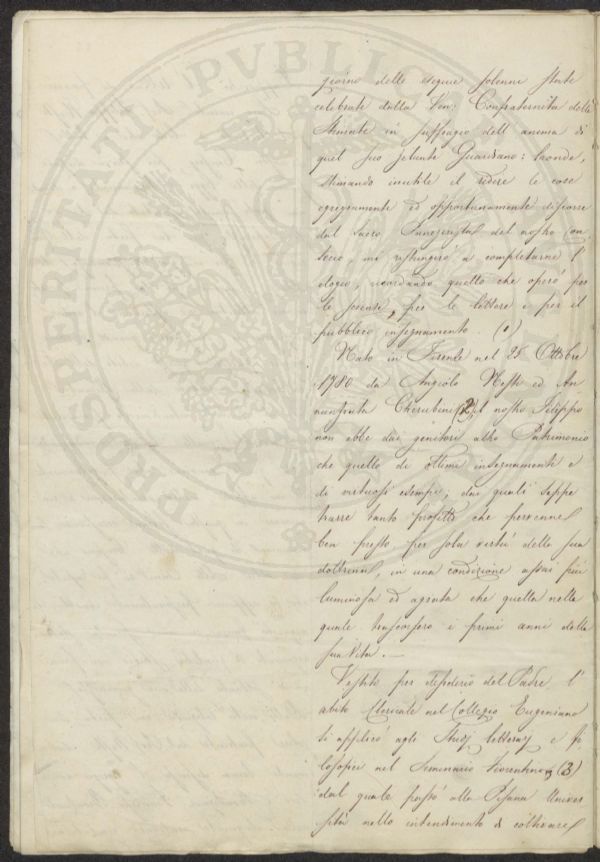 PROSPERITATI PVBLICAE
giorno delle esequie solenni state
celebrate dalla Ven: Confraternita delle
Stimate in suffragio dell anima di
quel suo zelante Guardiano: laonde,
stimando inutile il ridire le cose
egregiamente ed opportunamente discorse
dal Sacro del nostro Con
socio, mi restringerò a completarne l'
elogio, ricordando quello che operò per
le scienze, per le lettere e per il
pubblico insegnamento. (1)
Nato in Firenze nel 28 Ottobre
1780 da Angiolo Nesti ed An
nunziata Cherubini (2) il nostro Filippo
non ebbe dai genitori altro Patrimonio
che quello di ottimi insegnamenti e
di virtuosi esempi; dai quali seppe
trarre tanto profitto che pervenne
ben presto per sola virtù della sua
dottrina, in una condizione assai più
luminosa ed agiata che quella nella
quale trascorsero i primi anni della
sua vita. —
Vestito per desiderio del Padre l'
abito Clericale nel Collegio Eugeniano
si applicò agli Studj letterarj e fi
losofici nel Seminario fiorentino (3)
dal quale passò alla Pisana Univer
sità nello intendimento di coltivare